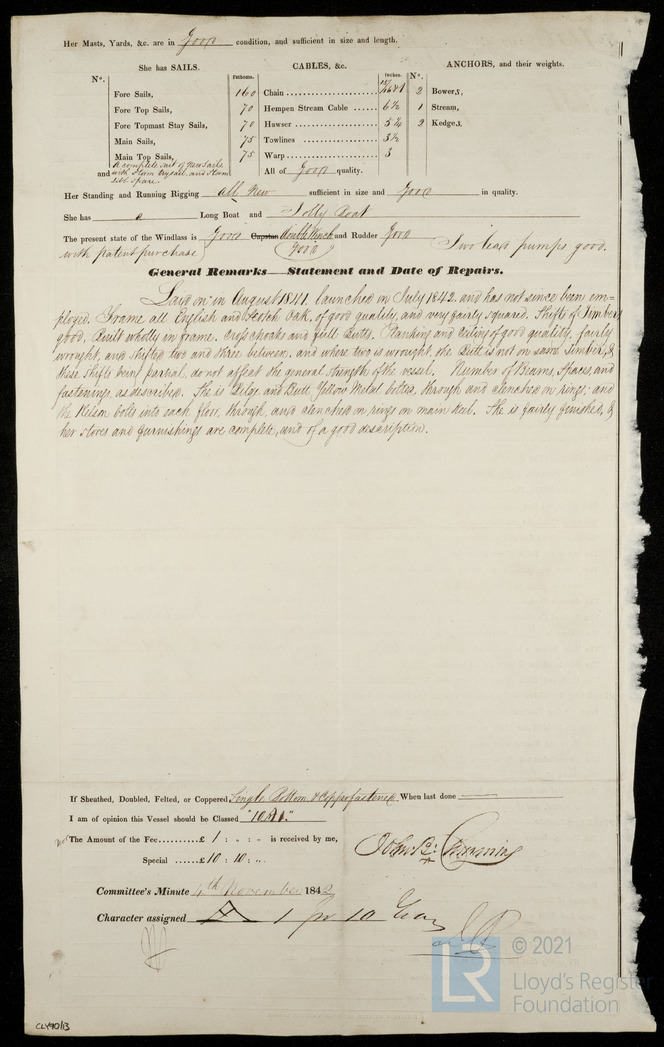 Her Masts, Yards, &c. are in Good condition, and sufficient in size and length.
She has SAILS. CABLES, &c. ANCHORS, and their weights.
N°. Fathoms. Inches. N°.
Fore Sails, 160 Chain 2 Bowers,
Fore Top Sails, 70 Hempen Stream Cable 6½ 1 Stream,
Fore Topmast Stay Sails, 70 Hawser 5¼ 2 Kedges,
Main Sails, 75 Towlines 3½
Main Top Sails, 75 Warp 3
A complete suit of New Sails
and with Storm trysail and Storm All of Good quality.
Jibb spare.
Her Standing and Running Rigging all New sufficient in size and Good in quality.
She has a Long Boat and Jolly Boat
The present state of the Windlass is Good Capstan Double Winch and Rudder Good Two lead pumps good.
with patent purchase Good
General Remarks—Statement and Date of Repairs.
Laid on in August 1841. launched on July 1842. and has not since been em-
ployed. Frame all English and Scotch Oak, of good quality, and very fairly squared. Shifts of Timbers
good, Built wholly in frame. Cross chocks and full Butts. Planking and Ceiling of good quality, fairly
wrought, and shifted two and three between, and where two is wrought, the Butt is not on same Timber, &
these shifts being partial, do not affect the general strength of the vessel. Number of Beams, Spaces, and
fastenings, as described. She is Bilge and Butt Yellow Metal bolted, through and clenched on rings, and
the Kelson bolts into each floor, through, and clenched on rings on main Keel. She is fairly finished, &
her stores and furnishings are complete, and of a good description.
If Sheathed, Doubled, Felted, or Coppered, Single Bottom & Copperfastened. When last done —
I am of opinion this Vessel should be Classed "10 A1."
The Amount of the Fee......£ 1 : - : - is received by me,
Special ......£ 10 : 10 : -
Committee's Minute 4th November 1842
Character assigned A 1 for 10 Years
© 2021
LR Lloyd's Register
Foundation
CLY90/13